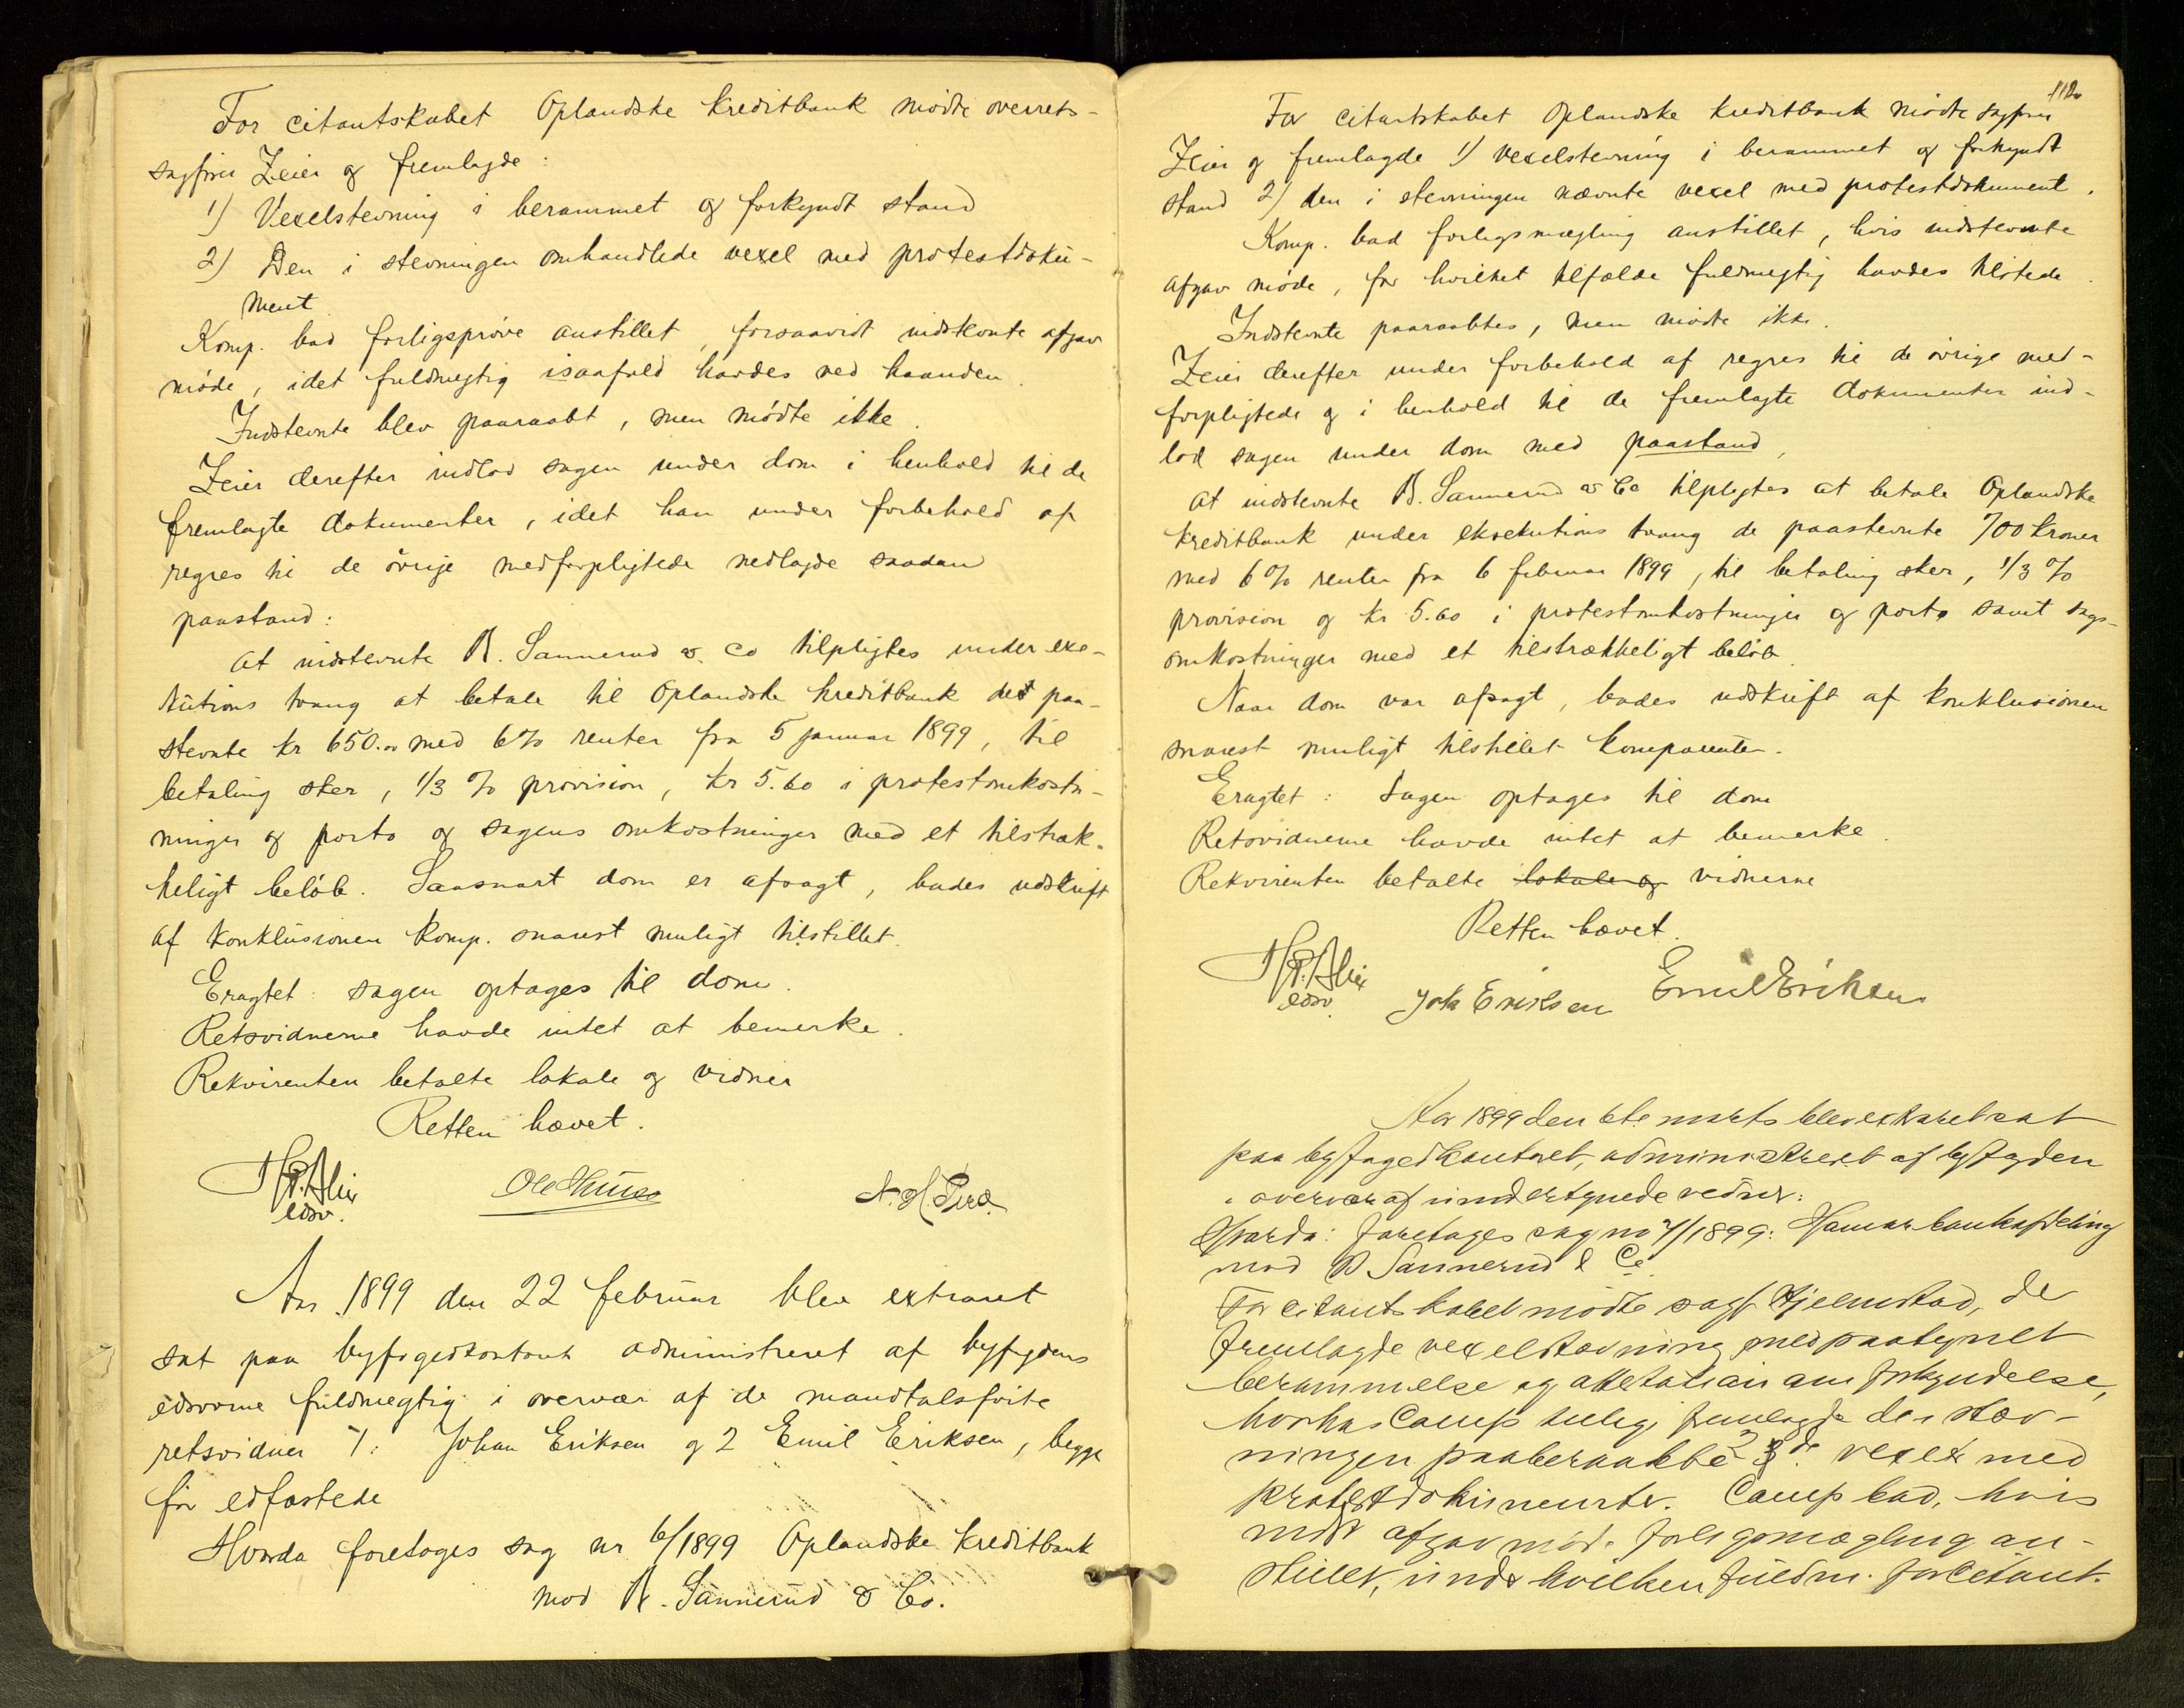 For citantskabet Oplandske kreditbank mødte overrets-
sagfører Zeier og fremlagde:
1) Vexelstevning i berammet og forkyndt stand
2) Den i stevningen omhandlede vexel med protestdoku-
ment
Komp. bad forligsprøve anstillet, forsaavidt indstevnte afgav
møde, idet fuldmegtig isaafald havdes ved haanden.
Indstevnte blev paaraabt, men mødte ikke.
Zeier derefter indlod sagen under dom i henhold til de
fremlagte dokumenter, idet han under forbehold af
regres til de øvrige medforpligtede nedlagde saadan
paastand:
At indstevnte B. Sannerud & Co tilpligtes under exe-
kutions tvang at betale til Oplandske kreditbank det paa-
stevnte kr 650.00 med 6% renter fra 5 januar 1899, til
betaling sker, 1/3 % provision, kr 5.60 i protestomkostn-
ninger og porto og sagens omkostninger med et tilstræk-
keligt beløb. Saasnart dom er afsagt, bades udskrift
af konklusionen komp. snarest muligt tilstillet.
Eragtet: sagen optages til dom.
Retsvidnerne havde intet at bemerke.
Rekvirenten betalte lokale og vidner
Retten hævet.
edsv.
Aar 1899 den 22 februar blev extraret
sat paa byfogedkontoret administreret af byfogdens
edsvorne fuldmegtig i overvær af de mandtalsførte
retsvidner 1: Johan Eriksen og 2 Emil Eriksen, begge
før edfæstede
Hvorda foretoges sag nr 6/1899 Oplandske kreditbank
mod B. Sannerud & Co.
112
For citantskabet Oplandske kreditbank mødte sagfører
Zeier og fremlagde 1) vexelstevning i berammet og forkyndt
stand 2) den i stevningen nævnte vexel med protestdokument.
Komp. bad forligsmægling anstillet, hvis indstevnte
afgav møde, for hvilket tilfælde fuldmegtig havdes tilstede.
Indstevnte paaraabtes, men mødte ikke.
Zeier derefter under forbehold af regres til de øvrige med-
forpligtede og i henhold til de fremlagte dokumenter ind-
lod sagen under dom med paastand,
At indstevnte B. Sannerud & Co tilpligtes at betale Oplandske
kreditbank under eksekutions tvang de paastevnte 700 kroner
med 6% renter fra 6 februar 1899, til betaling sker, 1/3 %
provision og kr 5.60 i protestomkostninger og porto samt sags-
omkostninger med et tilstrækkeligt beløb.
Naar dom var afsagt, bades udskrift af konklusionen
snarest muligt tilstillet komparenten.
Eragtet: Sagen optages til dom
Retsvidnerne havde intet at bemerke.
Rekvirenten betalte lokale og vidnerne
Retten hævet.
edsv. Joh Eriksen Emil Eriksen
Aar 1899 den 6te marts blev extraret sat
paa byfogedkontoret, administreret af byfogden
i overvær af undertegnede vidner:
Hvorda: foretoges sag no 7/1899: Hamar bankafdeling
mod B Sannerud & Co.
For citantskabet mødte sagf. Hjelmstad, der
fremlagde vexelstævning med paategnet
berammelse og attestation om forkyndelse,
hvorhos Comp tillige fremlagde de i stæv-
ningen paaberaabte 2 vexler med
protestdokumenter. Comp bad, hvis
indst afgav møde forligsmægling an-
stillet, under hvilken fuldm. for Citant-